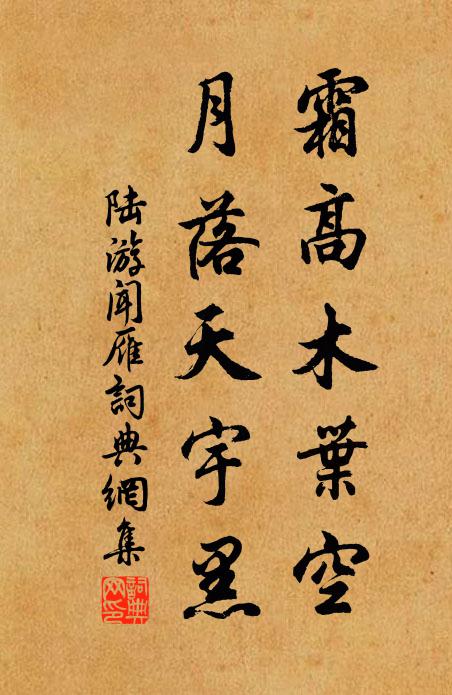 霜高木葉空
月落天宇黑
陆游闻雁詞典網集
詞典网印